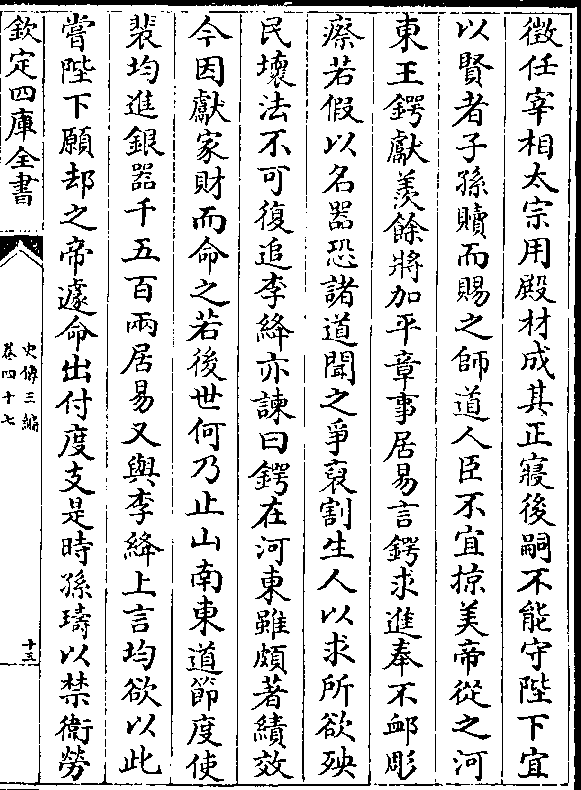 徵任宰相太宗用殿材成其正寢後嗣不能守陛下宜
以賢者子孫贖而賜之師道人臣不宜掠美帝從之河
東王鍔獻羨餘將加平章事居易言鍔求進奉不䘏彫
瘵若假以名器恐諸道聞之爭裒割生人以求所欲殃
民壞法不可復追李絳亦諫曰鍔在河東雖頗著績效
今因獻家財而命之若後世何乃止山南東道節度使
裴均進銀器千五百兩居易又與李絳上言均欲以此
嘗陛下願却之帝遽命出付度支是時孫璹以禁衞勞
欽定四庫全書
史傳三編
卷四十七
十三